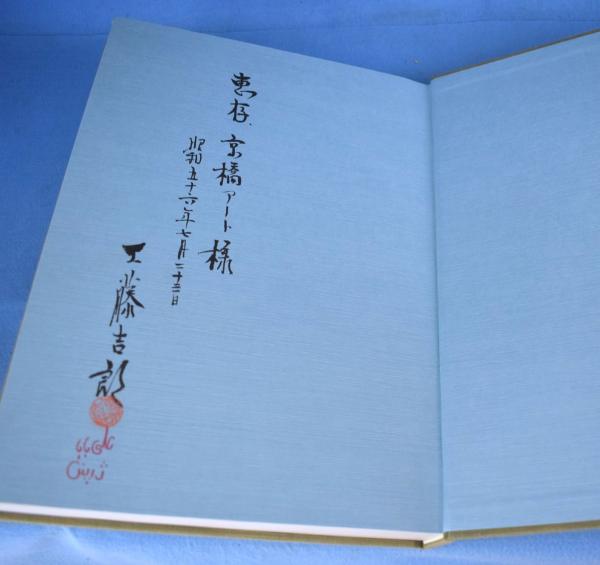 恵存 京橋アート様
昭和五十六年七月二十三日
工藤吉郎